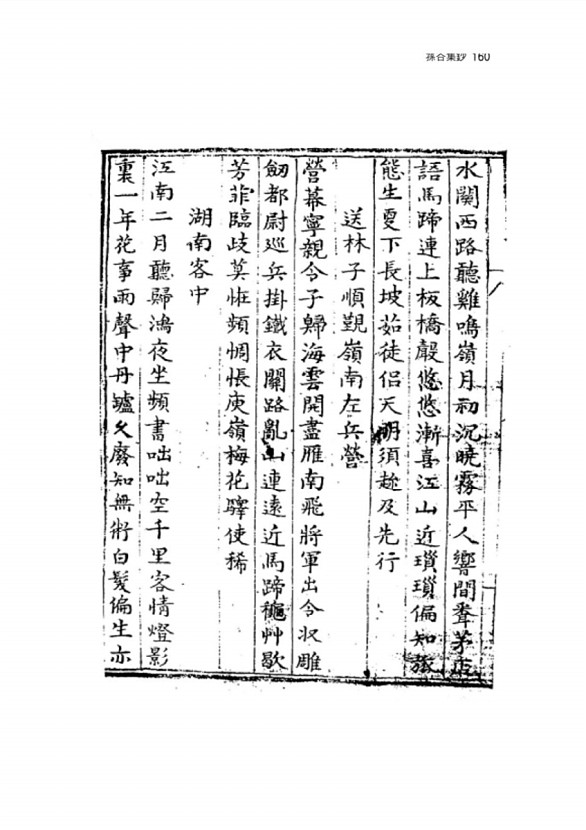 孫谷集鈔 160
水關西路聽雞鳴嶺月初沉曉霧平人響間聋茅店
語馬蹄連上板橋聲悠悠漸喜江山近瑣瑣偏知旅
態生夏下長坡茹徒侶天明須趁及先行
送林子順覲嶺南左兵營
營幕寧親令子歸海雲開盡雁南飛將軍出令収雕
劒都尉巡兵掛鐵衣關路亂山連遠近馬蹄穐艸歇
芳菲臨歧莫恠頻惆悵庾嶺梅花驛使稀
湖南客中
江南二月聽歸鴻夜坐頻書咄咄空千里客情燈影
裏一年花事雨聲中丹爐久廢知無術白髮偏生亦